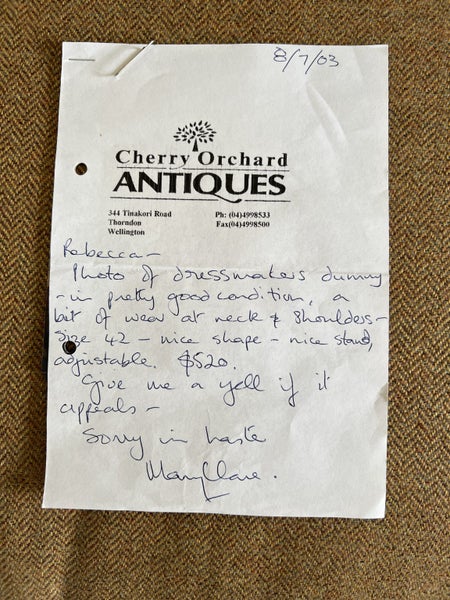 8/7/03
Cherry Orchard
ANTIQUES
344 Tinakori Road Ph: (04)4998533
Thorndon Fax(04)4998500
Wellington
Rebecca –
Photo of dressmakers dummy
– in pretty good condition, a
bit of wear at neck & shoulders –
size 42 – nice shape – nice stand,
adjustable. $520.
Give me a yell if it
appeals –
Sorry in haste
MaryClare.